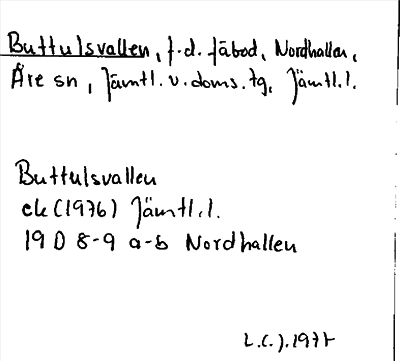 Buttulsvallen, f.d. fäbod, Nordhallen,
Åre sn, Jämtl. v. doms. tg, Jämtl.l.
Buttulsvallen
ek (1976) Jämtl.l.
19 D 8-9 a-b Nordhallen
L.C.J. 1977